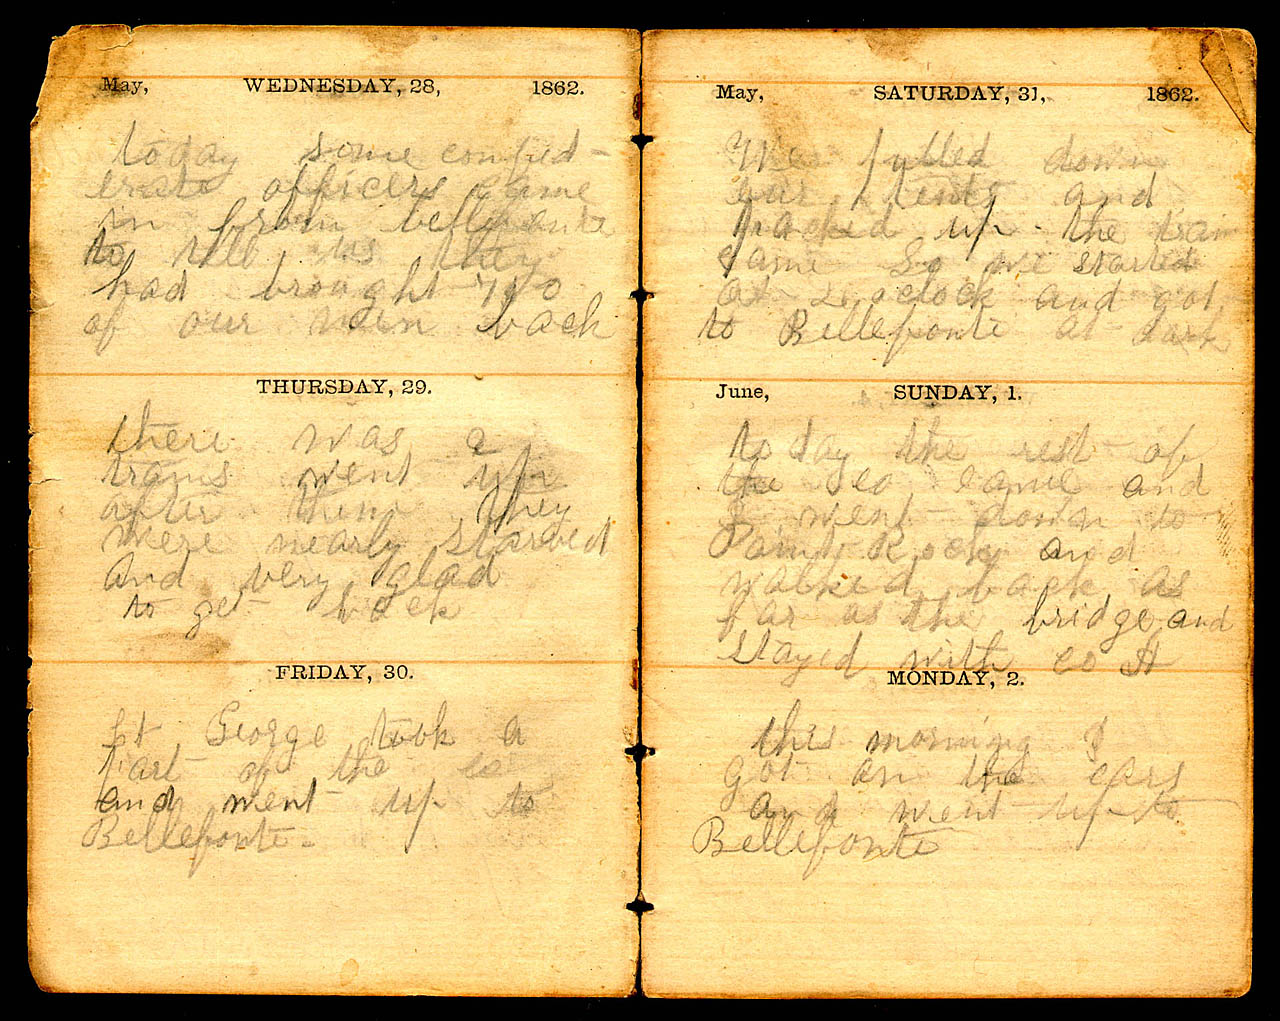 May, WEDNESDAY, 28, 1862.
today some confed-
erate officers came
in from bellfonte
to tell us they
had brought 
of our men back
THURSDAY, 29.
there was a
trans went up
after them they
were nearly starved
and very glad
to get back
FRIDAY, 30.
Lt George took a
part of the co
and went up to
Bellefonte -
May, SATURDAY, 31, 1862.
We pulled down
our tents and
packed up the train
came So we started
at 2 oclock and got
to Bellefonte at dark
June, SUNDAY, 1.
today the rest of
the co came and
I went down to
Paint Rock and
walked back as
far as the bridge and
stayed with co H
MONDAY, 2.
this morning I
got on the cars
and went up to
Bellefonte